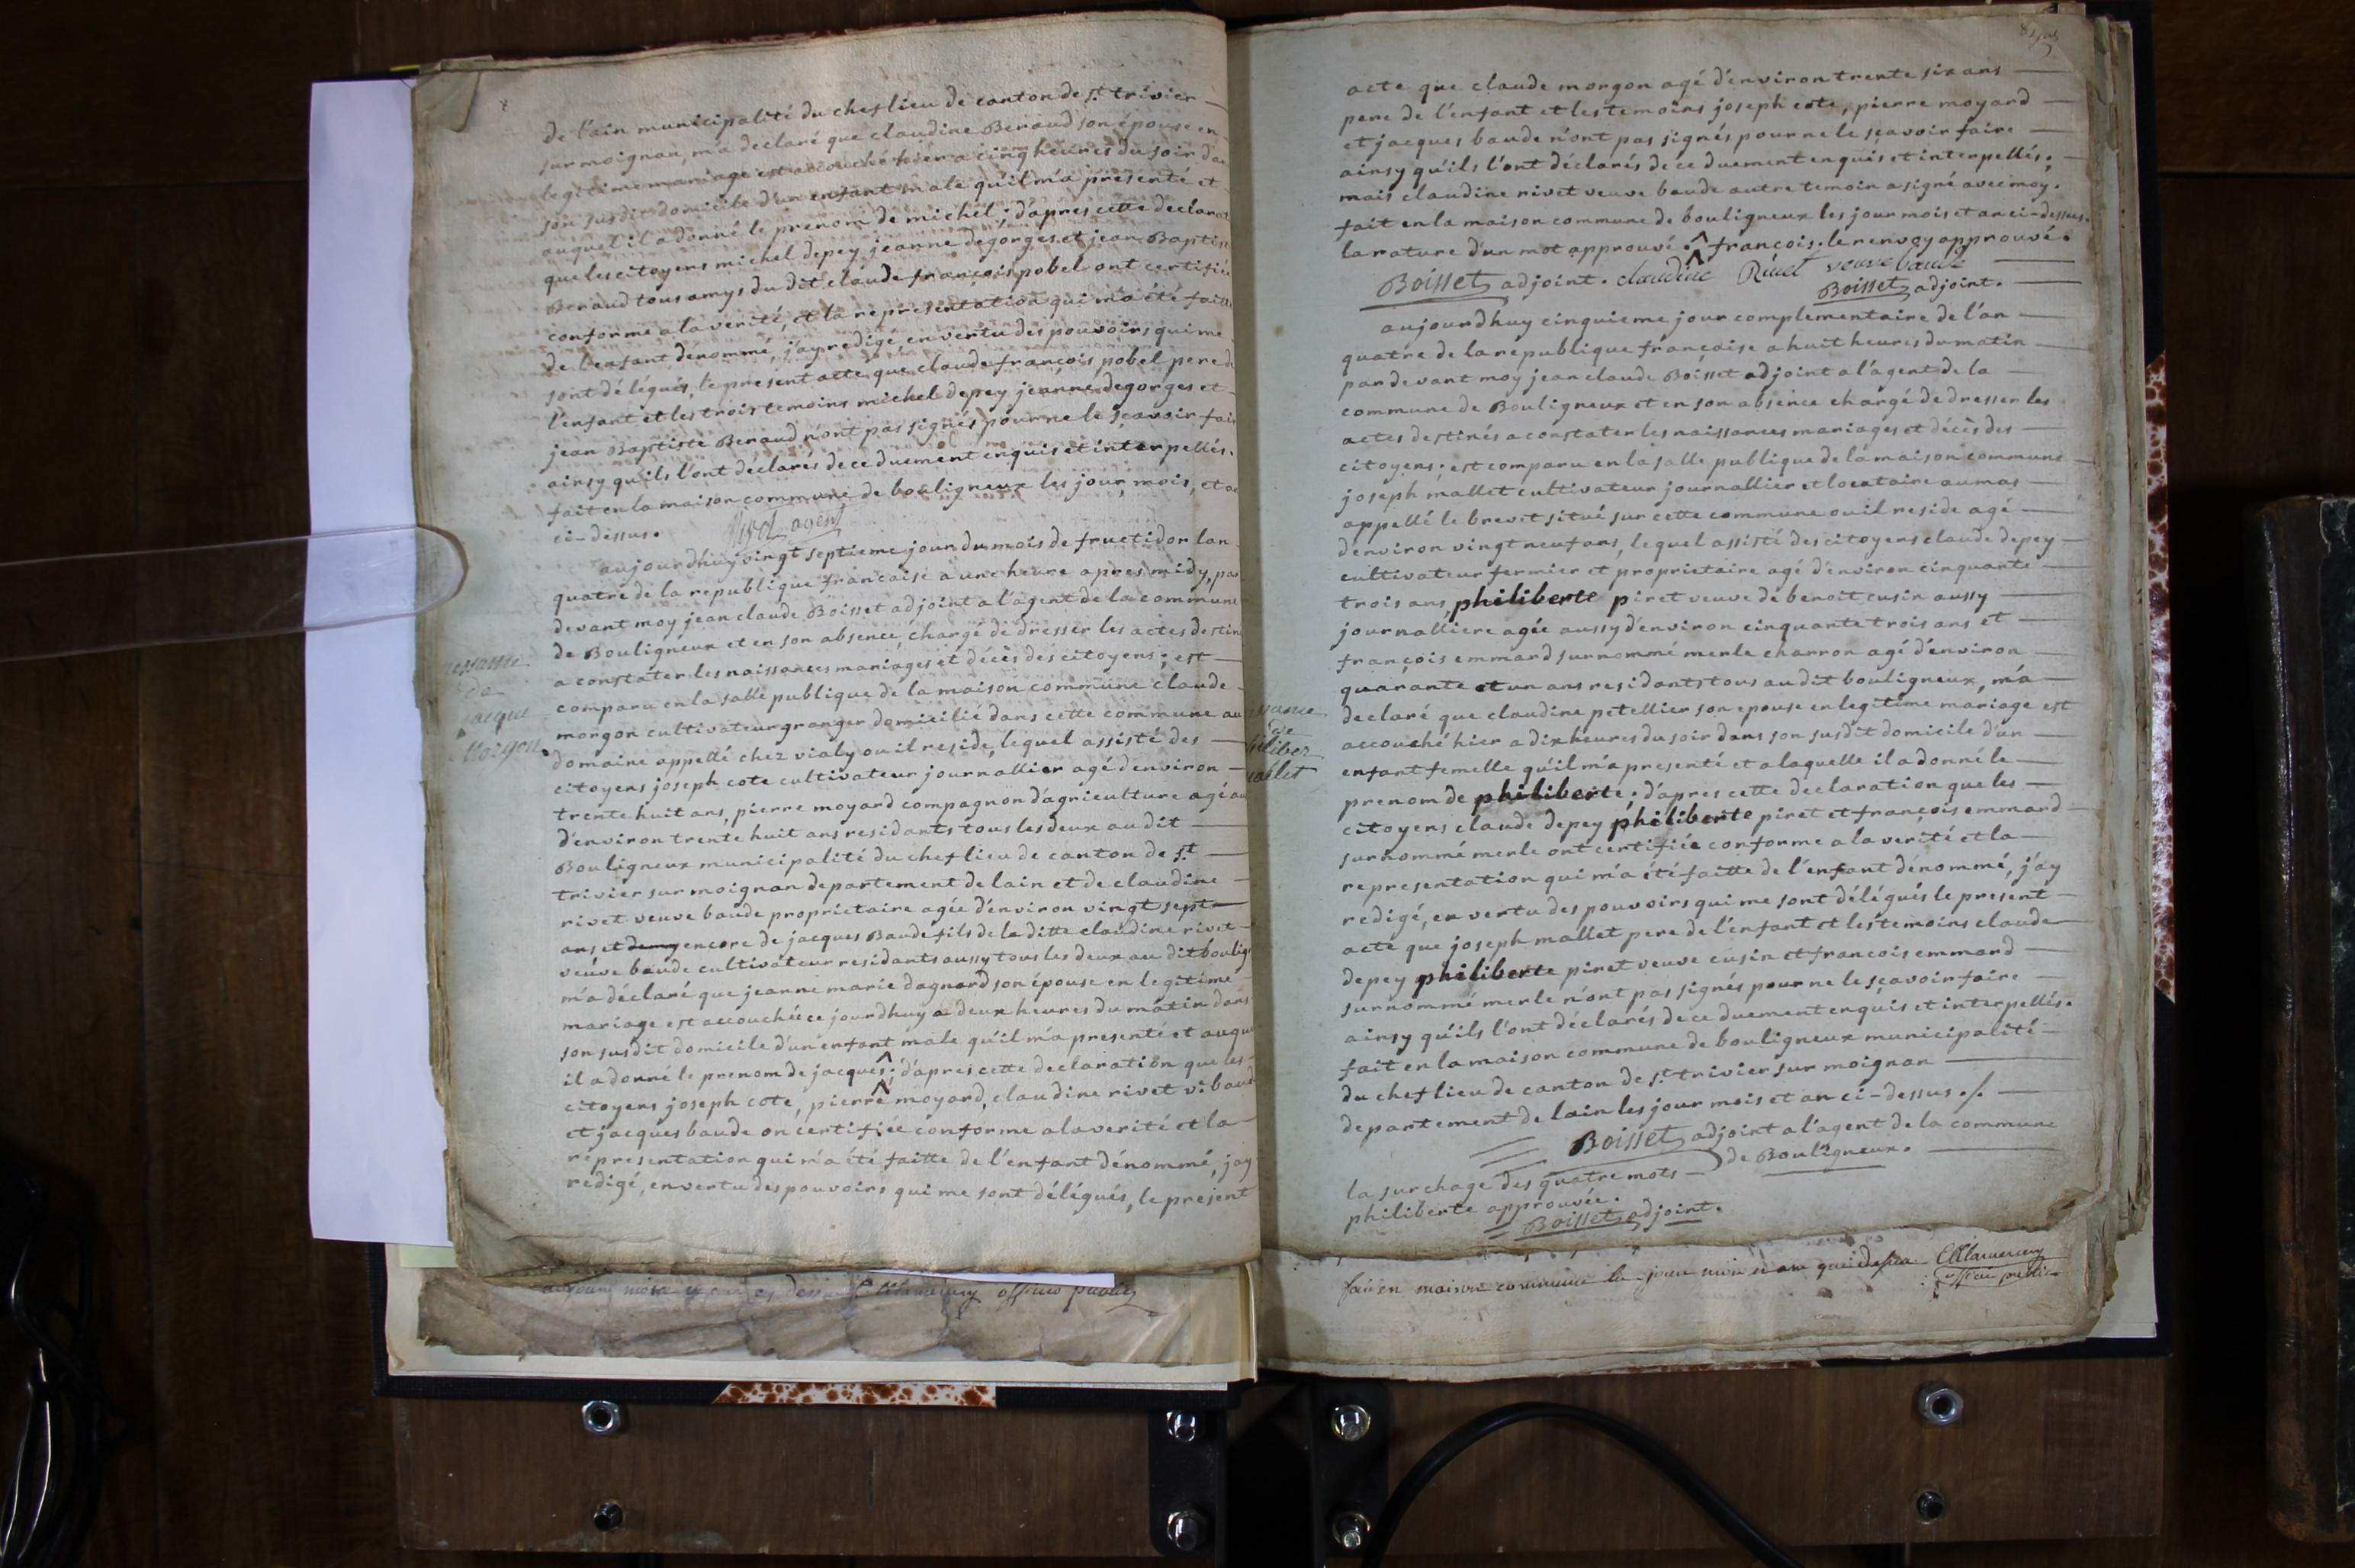 de l'ain municipalité du chef lieu de canton de s.t trivier
sur moignan, m'a declaré que claudine Beraud son épouse en
legitime mariage est accouché hier a cinq heures du soir dan
son susdit domicile d'un enfant male qu'il m'a presenté et
auquel il a donné le prenom de michel; d'apres cette declarat
que les citoyens michel depey jeanne degorges et jean Baptist
Beraud tous amys du dit claude françois pobel ont certifiée
conforme a la verité, et la representation qui m'a été faitte
de l'enfant dénommé, j'ay redigé, en vertu des pouvoirs qui me
sont délégués, le present acte que claude françois pobel pere d
l'enfant et les trois temoins michel depey jeanne degorges et
jean Baptiste Beraud n'ont pas signés pour ne le sçavoir fair
ainsy qu'ils l'ont déclarés de ce duement enquis et interpellés.
fait en la maison commune de bouligneux les jour, mois, et a
ci-dessus. agent
aujourdhuy vingt septieme jour du mois de fructidor lan
quatre de la republique francaise a une heure apres midy, par
devant moy jean claude Boisset adjoint a l'agent de la commune
de Bouligneux et en son absence, chargé de dresser les actes destin
a constater les naissances mariages et décès des citoyens; est
comparu en la salle publique de la maison commune claude
morgon cultivateur granger domicilié dans cette commune au
domaine appellé chez vialy ou il reside, lequel assisté des
citoyens joseph cote cultivateur journallier agé d'environ
trente huit ans, pierre moyard compagnon d'agriculture agé au
d'environ trente huit ans residants tous les deux au dit
Bouligneux municipalité du chef lieu de canton de s.t
trivier sur moignan departement de lain et de claudine
rivet veuve baude proprietaire agée d'environ vingt sept
ans et demy encore de jacques Baude fils de la ditte claudine rivet
veuve baude cultivateur residants aussy tous les deux au dit boulig
m'a déclaré que jeanne marie dagnard son épouse en legitime
mariage est accouchée ce jourdhuy a deux heures du matin dans
son susdit domicile d'un enfant male qu'il m'a presenté et auque
il a donné le prenom de jacques ^; d'apres cette declaration que les
citoyens joseph cote, pierre moyard, claudine rivet v. baud
et jacques baude on certifiée conforme a la verité et la
representation qui m'a été faitte de l'enfant dénommé, jay
redigé, en vertu des pouvoirs qui me sont délégués, le present
naissance
de
jacque
Morgon
mois officier public
acte que claude morgon agé d'environ trente six ans
pere de l'enfant et les temoins joseph cote, pierre moyard
et jacques baude n'ont pas signés pour ne le sçavoir faire
ainsy qu'ils l'ont déclarés de ce duement enquis et interpellés;
mais claudine rivet veuve baude autre temoin a signé avec moy.
fait en la maison commune de bouligneux les jour mois et an ci-dessus.
la rature d'un mot approuvé. ^ françois. le renvoy approuvé.
Boisset adjoint. claudine Rivet veuve baude
Boisset adjoint.
aujourdhuy cinquieme jour complementaire de l'an
quatre de la republique française a huit heures du matin
par devant moy jean claude Boisset adjoint a l'agent de la
commune de Bouligneux et en son absence chargé de dresser les
actes destinés a constater les naissances mariages et décès des
citoyens; est comparu en la salle publique de la maison commune
joseph mallet cultivateur journallier et locataire au mas
appellé le brevet situé sur cette commune ou il reside agé
d'environ vingt neuf ans, lequel assisté des citoyens claude depey
cultivateur fermier et proprietaire agé d'environ cinquante
trois ans, philiberte piret veuve de benoit cusin aussy
journalliere agée aussy d'environ cinquante trois ans et
françois emmard surnommé merle charron agé d'environ
quarante et un ans residants tous au dit bouligneux, m'a
declaré que claudine petellier son epouse en legitime mariage est
accouché hier a dix heures du soir dans son susdit domicile d'un
enfant femelle qu'il m'a presenté et a laquelle il a donné le
prenom de philiberte; d'apres cette declaration que les
citoyens claude depey philiberte piret et françois emmard
surnommé merle ont certifiée conforme a la verité et la
representation qui m'a été faitte de l'enfant dénommé, j'ay
redigé, en vertu des pouvoirs qui me sont délégués le present
acte que joseph mallet pere de l'enfant et les temoins claude
depey philiberte piret veuve cusin et francois emmard
surnommé merle n'ont pas signés pour ne le sçavoir faire
ainsy qu'ils l'ont déclarés de ce duement enquis et interpellés.
fait en la maison commune de bouligneux municipalité
du chef lieu de canton de s.t trivier sur moignan
departement de lain les jour mois et an ci-dessus ./.
Boisset adjoint a l'agent de la commune
de Bouligneux.
la surchage des quatre mots
philiberte approuvée.
Boisset adjoint.
de
fait en maison commune le jour mois et an que dessus